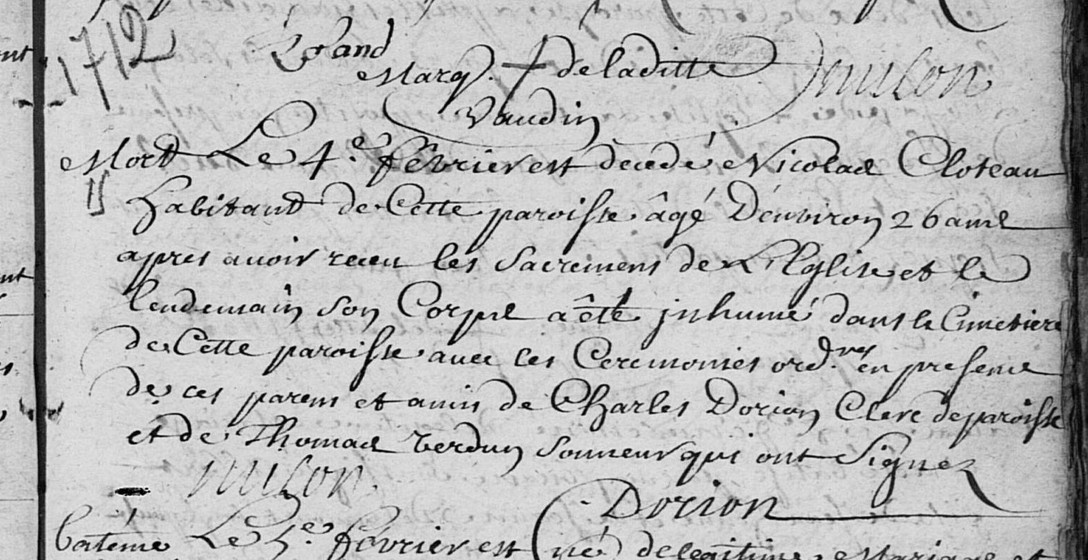 1712
Grand
Marq + de laditte
Vaudin
Mort Le 4.e fevrier est decedé Nicolas Cloteau
11 habitant de Cette paroisse âgé D'environ 26 ans
apres avoir receu les Sacremens de L'Eglise et le
lendemain son Corps a été inhumé dans le Cimetiere
de Cette paroisse avec les Ceremonies ord.res en presence
de ces parens et amis de Charles Dorion Clerc de paroisse
et de Thomas verdun Sonneur qui ont Signez
Dorion
bateme Le 5.e fevrier est né de legitime Mariage